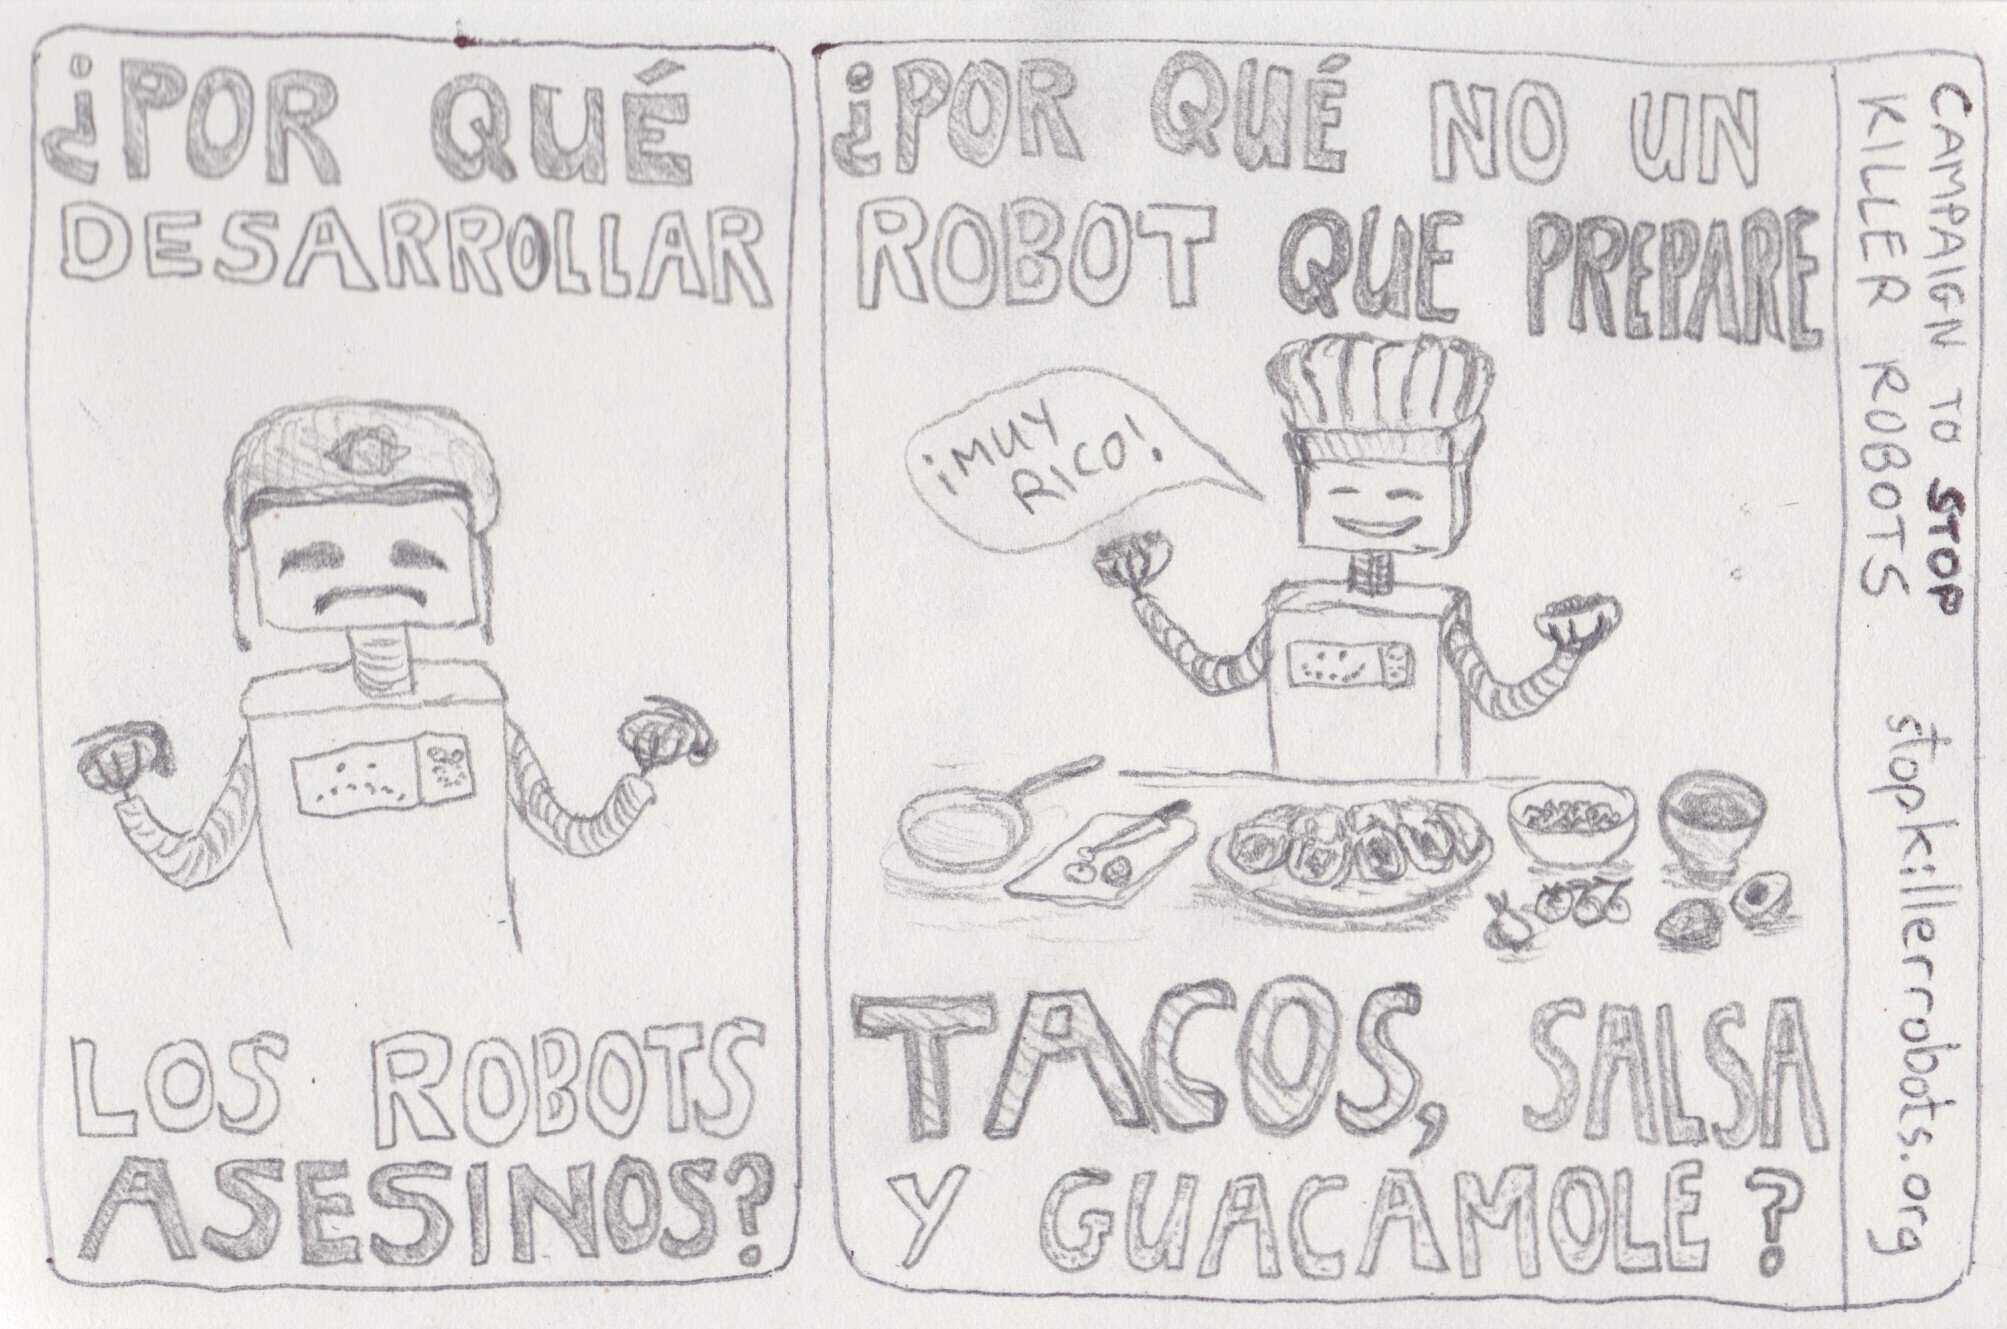 ¿POR QUÉ
DESARROLLAR
LOS ROBOTS
ASESINOS?
¿POR QUÉ NO UN
ROBOT QUE PREPARE
¡MUY
RICO!
TACOS, SALSA
Y GUACAMOLE?
CAMPAIGN TO STOP
KILLER ROBOTS
stopkillerrobots.org